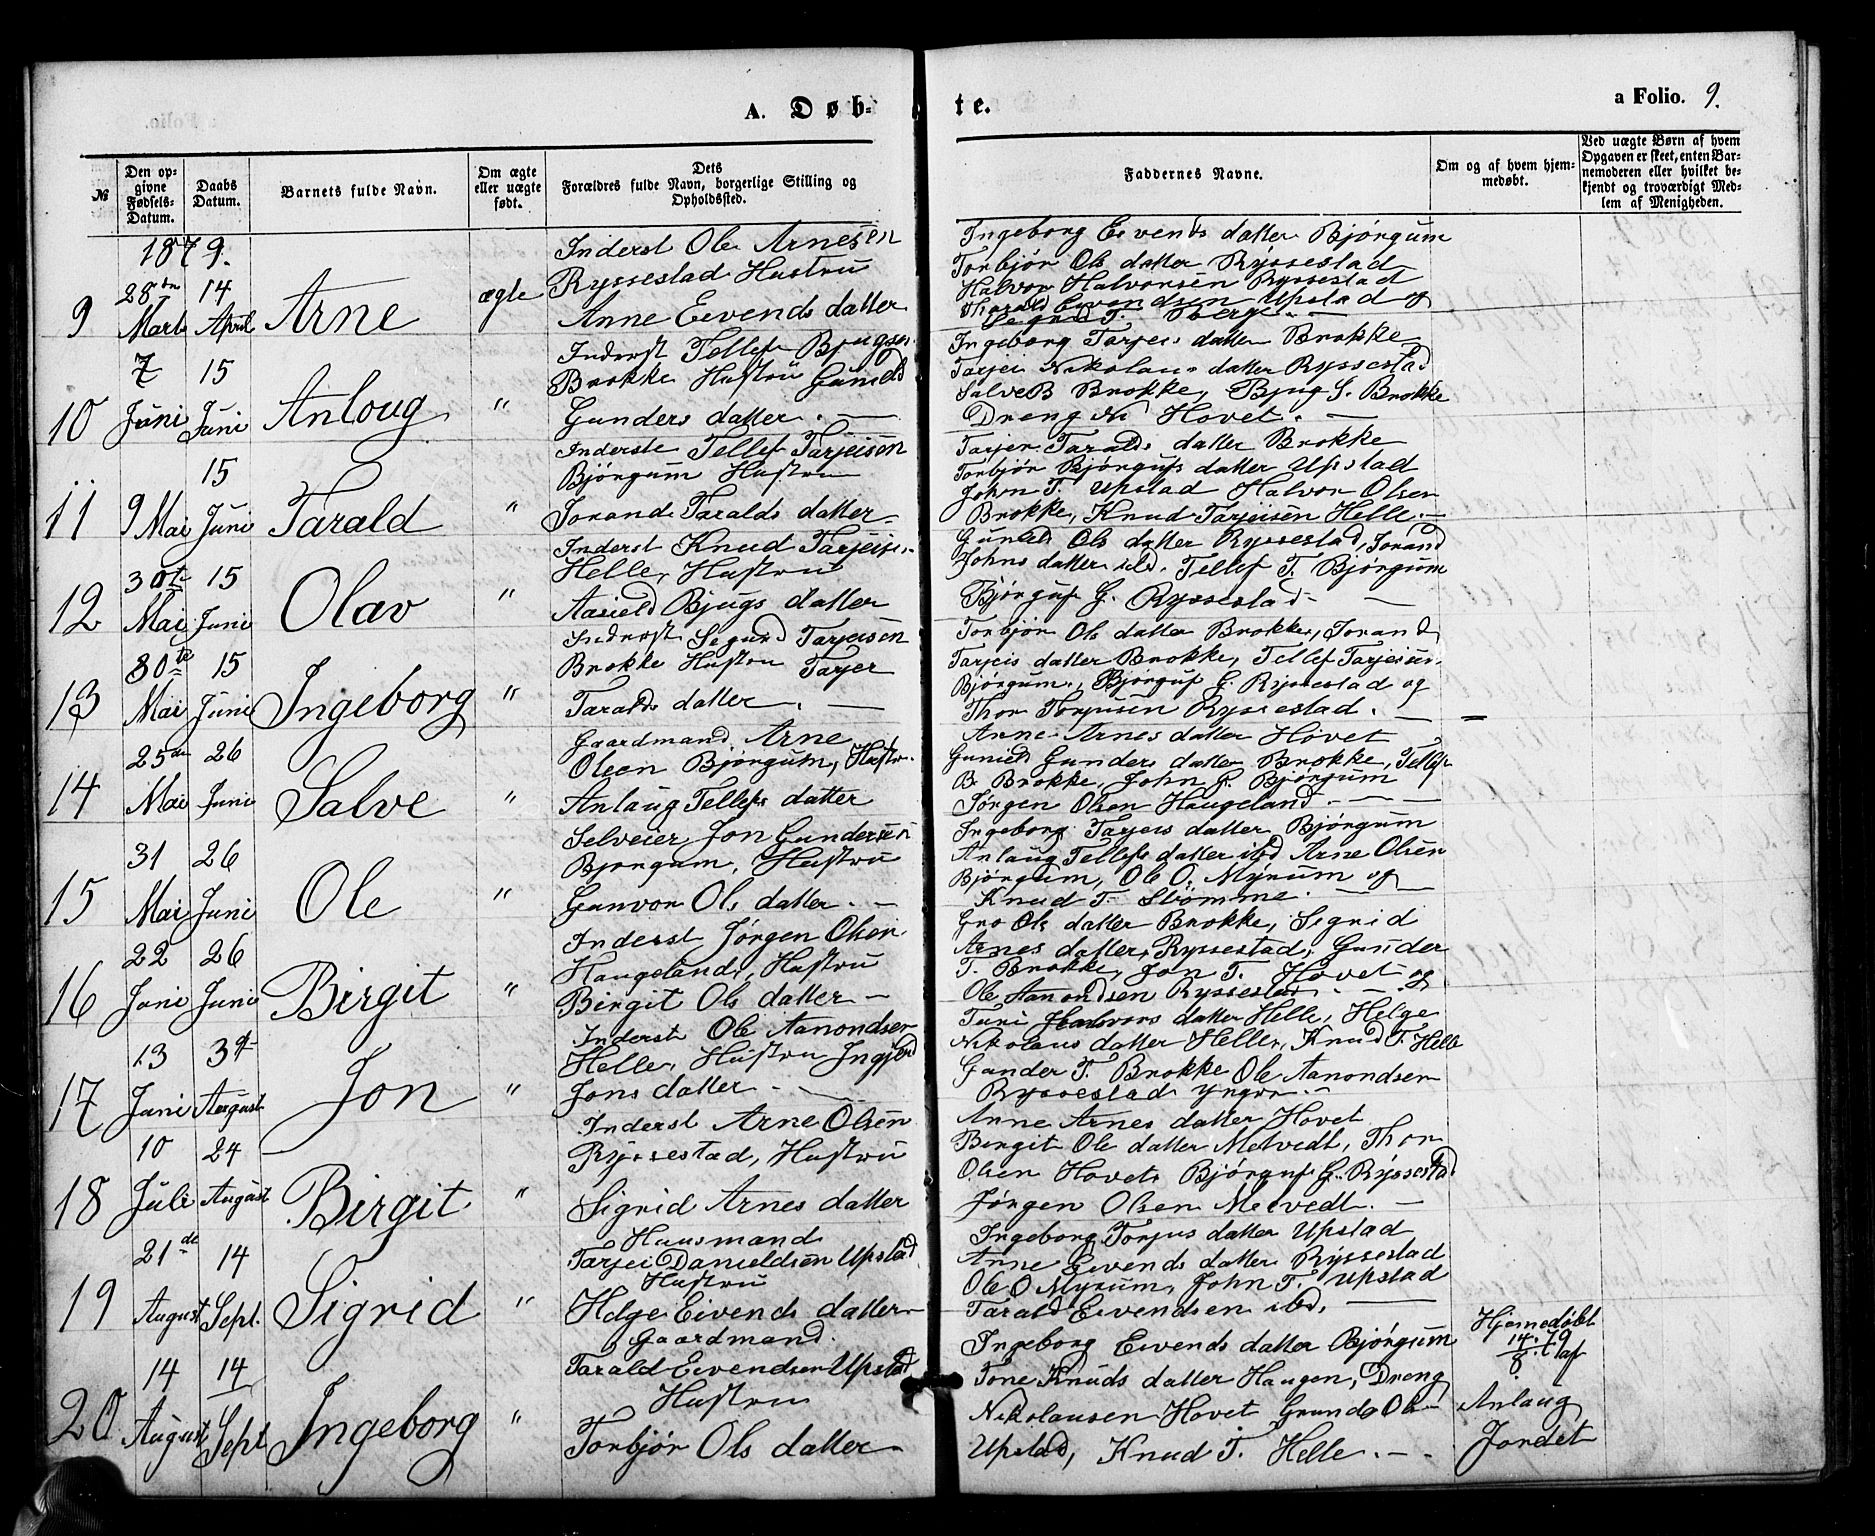 A. Døb-te.
a Folio. 9.
№
Den opgivne Fødsels-Datum.
Daabs Datum.
Barnets fulde Navn.
Om ægte eller uægte født.
Dets Forældres fulde Navn, borgerlige Stilling og Opholdssted.
Faddernes Navne.
Om og af hvem hjemmedøbt.
Ved uægte Børn af hvem Opgaven er skeet, enten Barnemoderen eller hvilket bekjendt og troværdigt Medlem af Menigheden.
1879.
9
28de Marts
14 April
Arne
ægte
Inderst Ole Arnesen
Ryssestad Hustru
Anne Eivends datter
Ingeborg Eivends datter Bjørgum
Torbjør Ols datter Ryssestad
Halvor Halvorsen Ryssestad
Tharald Eivendsen Upstad og
10
7 Juni
15 Juni
Anloug
"
Inderst Tellef Bjugsen
Brokke Hustru Gunild
Gunders datter. —
Ingeborg Tarjeis datter Brokke
Tarjei Nikolaus datter Ryssestad
Salve B Brokke, Bjug S. Brokke
Dreng N Hovet. —
11
9 Mai
15 Juni
Tarald
"
Inderste Tellef Tarjeisen
Bjørgum Hustru
Jorand Taralds datter
Tarjer Taralds datter Brokke
Torbjør Bjørgufs datter Upstad
John T. Upstad Halvor Olsen
Brokke, Knud Tarjeisen Helle. —
12
30te Mai
15 Juni
Olav
"
Inderst Knud Tarjeisen
Helle, Hustru
Aasield Bjugs datter
Gunild Ols datter Ryssestad, Jorand
Johns datter ibd. Tellef T. Bjørgum
Bjørguf G. Ryssestad —
13
30te Mai
15 Juni
Ingeborg
"
Inderst Segurd Tarjeisen
Brokke Hustru Tarjer
Taralds datter. —
Torbjør Ols datter Brokke, Jorand
Tarjeis datter Brokke, Tellef Tarjeisen
Bjørgum, Bjørguf G. Ryssestad og
Thor Torjusen Ryssestad. —
14
25de Mai
26 Juni
Salve
"
Gaardmand Arne
Olsen Bjørgum, Hustru
Anlaug Tellefs datter
Anne Arnes datter Hovet
Gunild Gunders datter Brokke, Tellef
B. Brokke, John G. Bjørgum
Jørgen Olsen Haugeland. —
15
31 Mai
26 Juni
Ole
"
Selveier Jon Gundersen
Bjørgum, Hustru
Gunvor Ols datter. —
Ingeborg Tarjeis datter Bjørgum
Anlaug Tellefs datter ibd Arne Olsen
Bjørgum, Ole O. Myrum og
Knud T. Strømme. —
16
22 Juni
26 Juni
Birgit
"
Inderst Jørgen Olsen
Haugeland, Hustru
Birgit Ols datter —
Gro Ols datter Brokke, Sigrid
Arnes datter Ryssestad, Gunder
T. Brokke, Jon T. Hovet og
Ole Aanondsen Ryssestad. —
17
13 Juni
3die August
Jon
"
Inderst Ole Aanondsen
Helle, Hustru Ingjerd
Jons datter —
Turi Halvors datter Helle, Helge
Nikolaus datter Helle, Knud T. Helle
Gunder T. Brokke Ole Aanondsen
Ryssestad Yngre. —
18
10 Juli
24 August
Birgit
"
Inderst Arne Olsen
Ryssestad, Hustru
Sigrid Arnes datter
Anne Arnes datter Hovet
Birgit Ols datter Melvedt, Thor
Olsen Hovet Bjørguf G. Ryssestad
Jørgen Olsen Melvedt. —
19
21de August
14 Sept.
Sigrid
"
Huusmand
Tarjei Danieldsen Upstad
Hustru
Helge Eivends datter
Ingeborg Torjus datter Upstad
Anne Eivends datter Ryssestad
Ole O Myrum, John T. Upstad
Tarald Eivendsen ibd. —
20
14 August
14 Sept
Ingeborg
"
Gaardmand.
Tarald Eivendsen Upstad
Hustru
Torbjør Ols datter
Ingeborg Eivends datter Bjørgum
Tone Knuds datter Haugen, Dreng
Nikolausen Hovet
Upstad, Knud T. Helle. —
Hjemedøbt
14/8. 79 af
Anlaug
Jordet